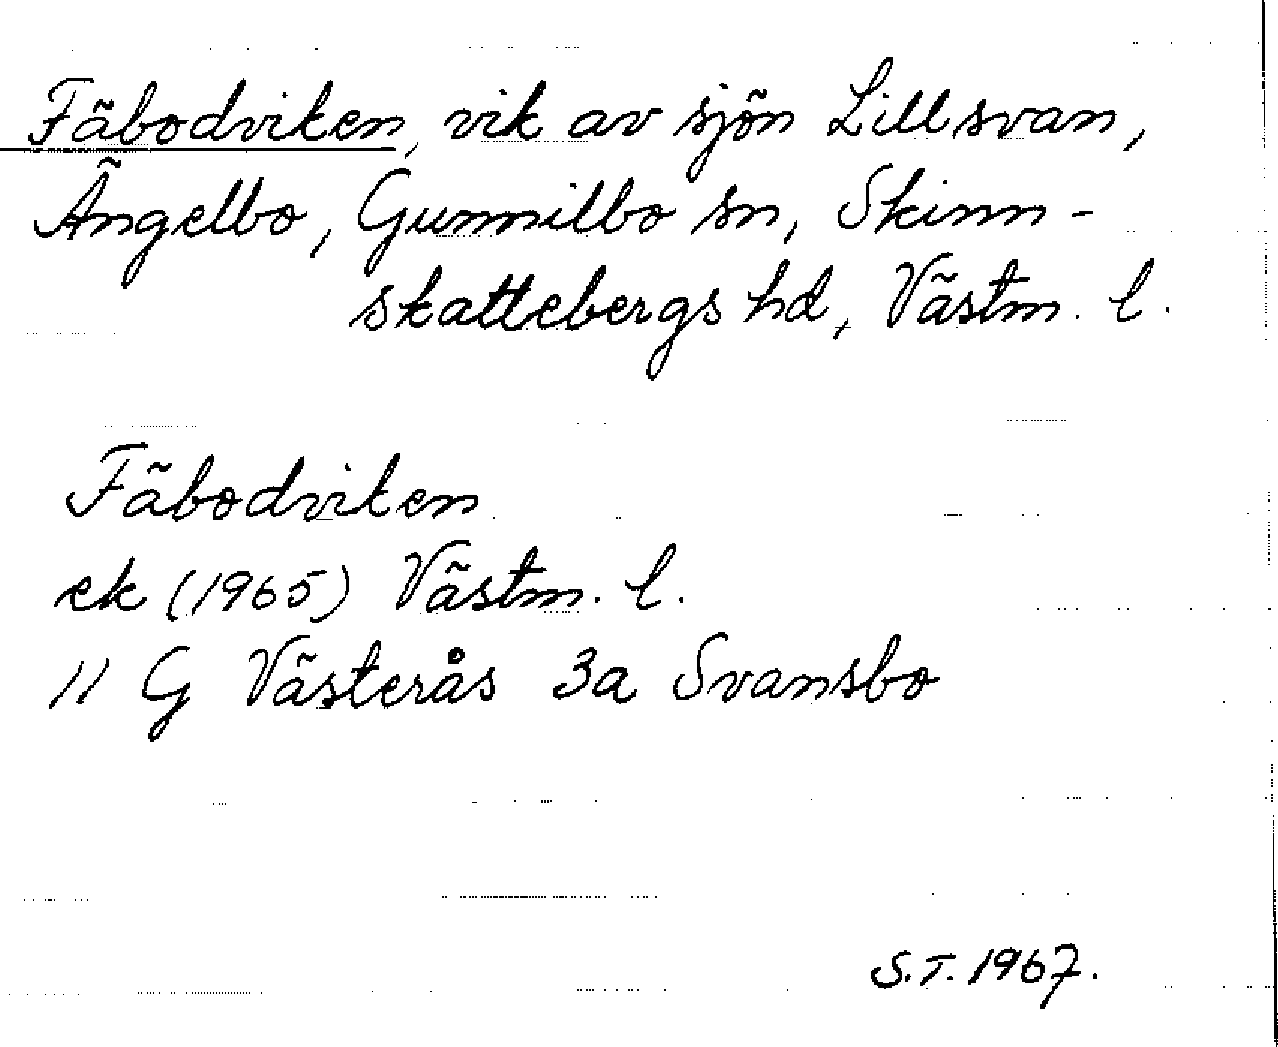 Fäbodviken, vik av sjön Lillsvan,
Ängelbo, Gunnilbo sn, Skinn-
skattebergs hd, Västm. l.
Fäbodviken
ek (1965) Västm. l.
11 G Västerås 3a Svansbo
S.T. 1967.